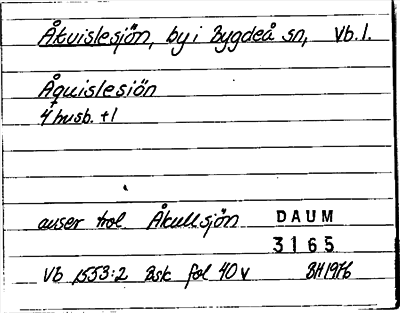 Åkvislesjön, by i Bygdeå sn, Vb. l.
Åquislesiön
4 husb. +1
avser trol. Åkullsjön DAUM
3165
Vb 1553:2 Bsk fol 40 v BH 1976